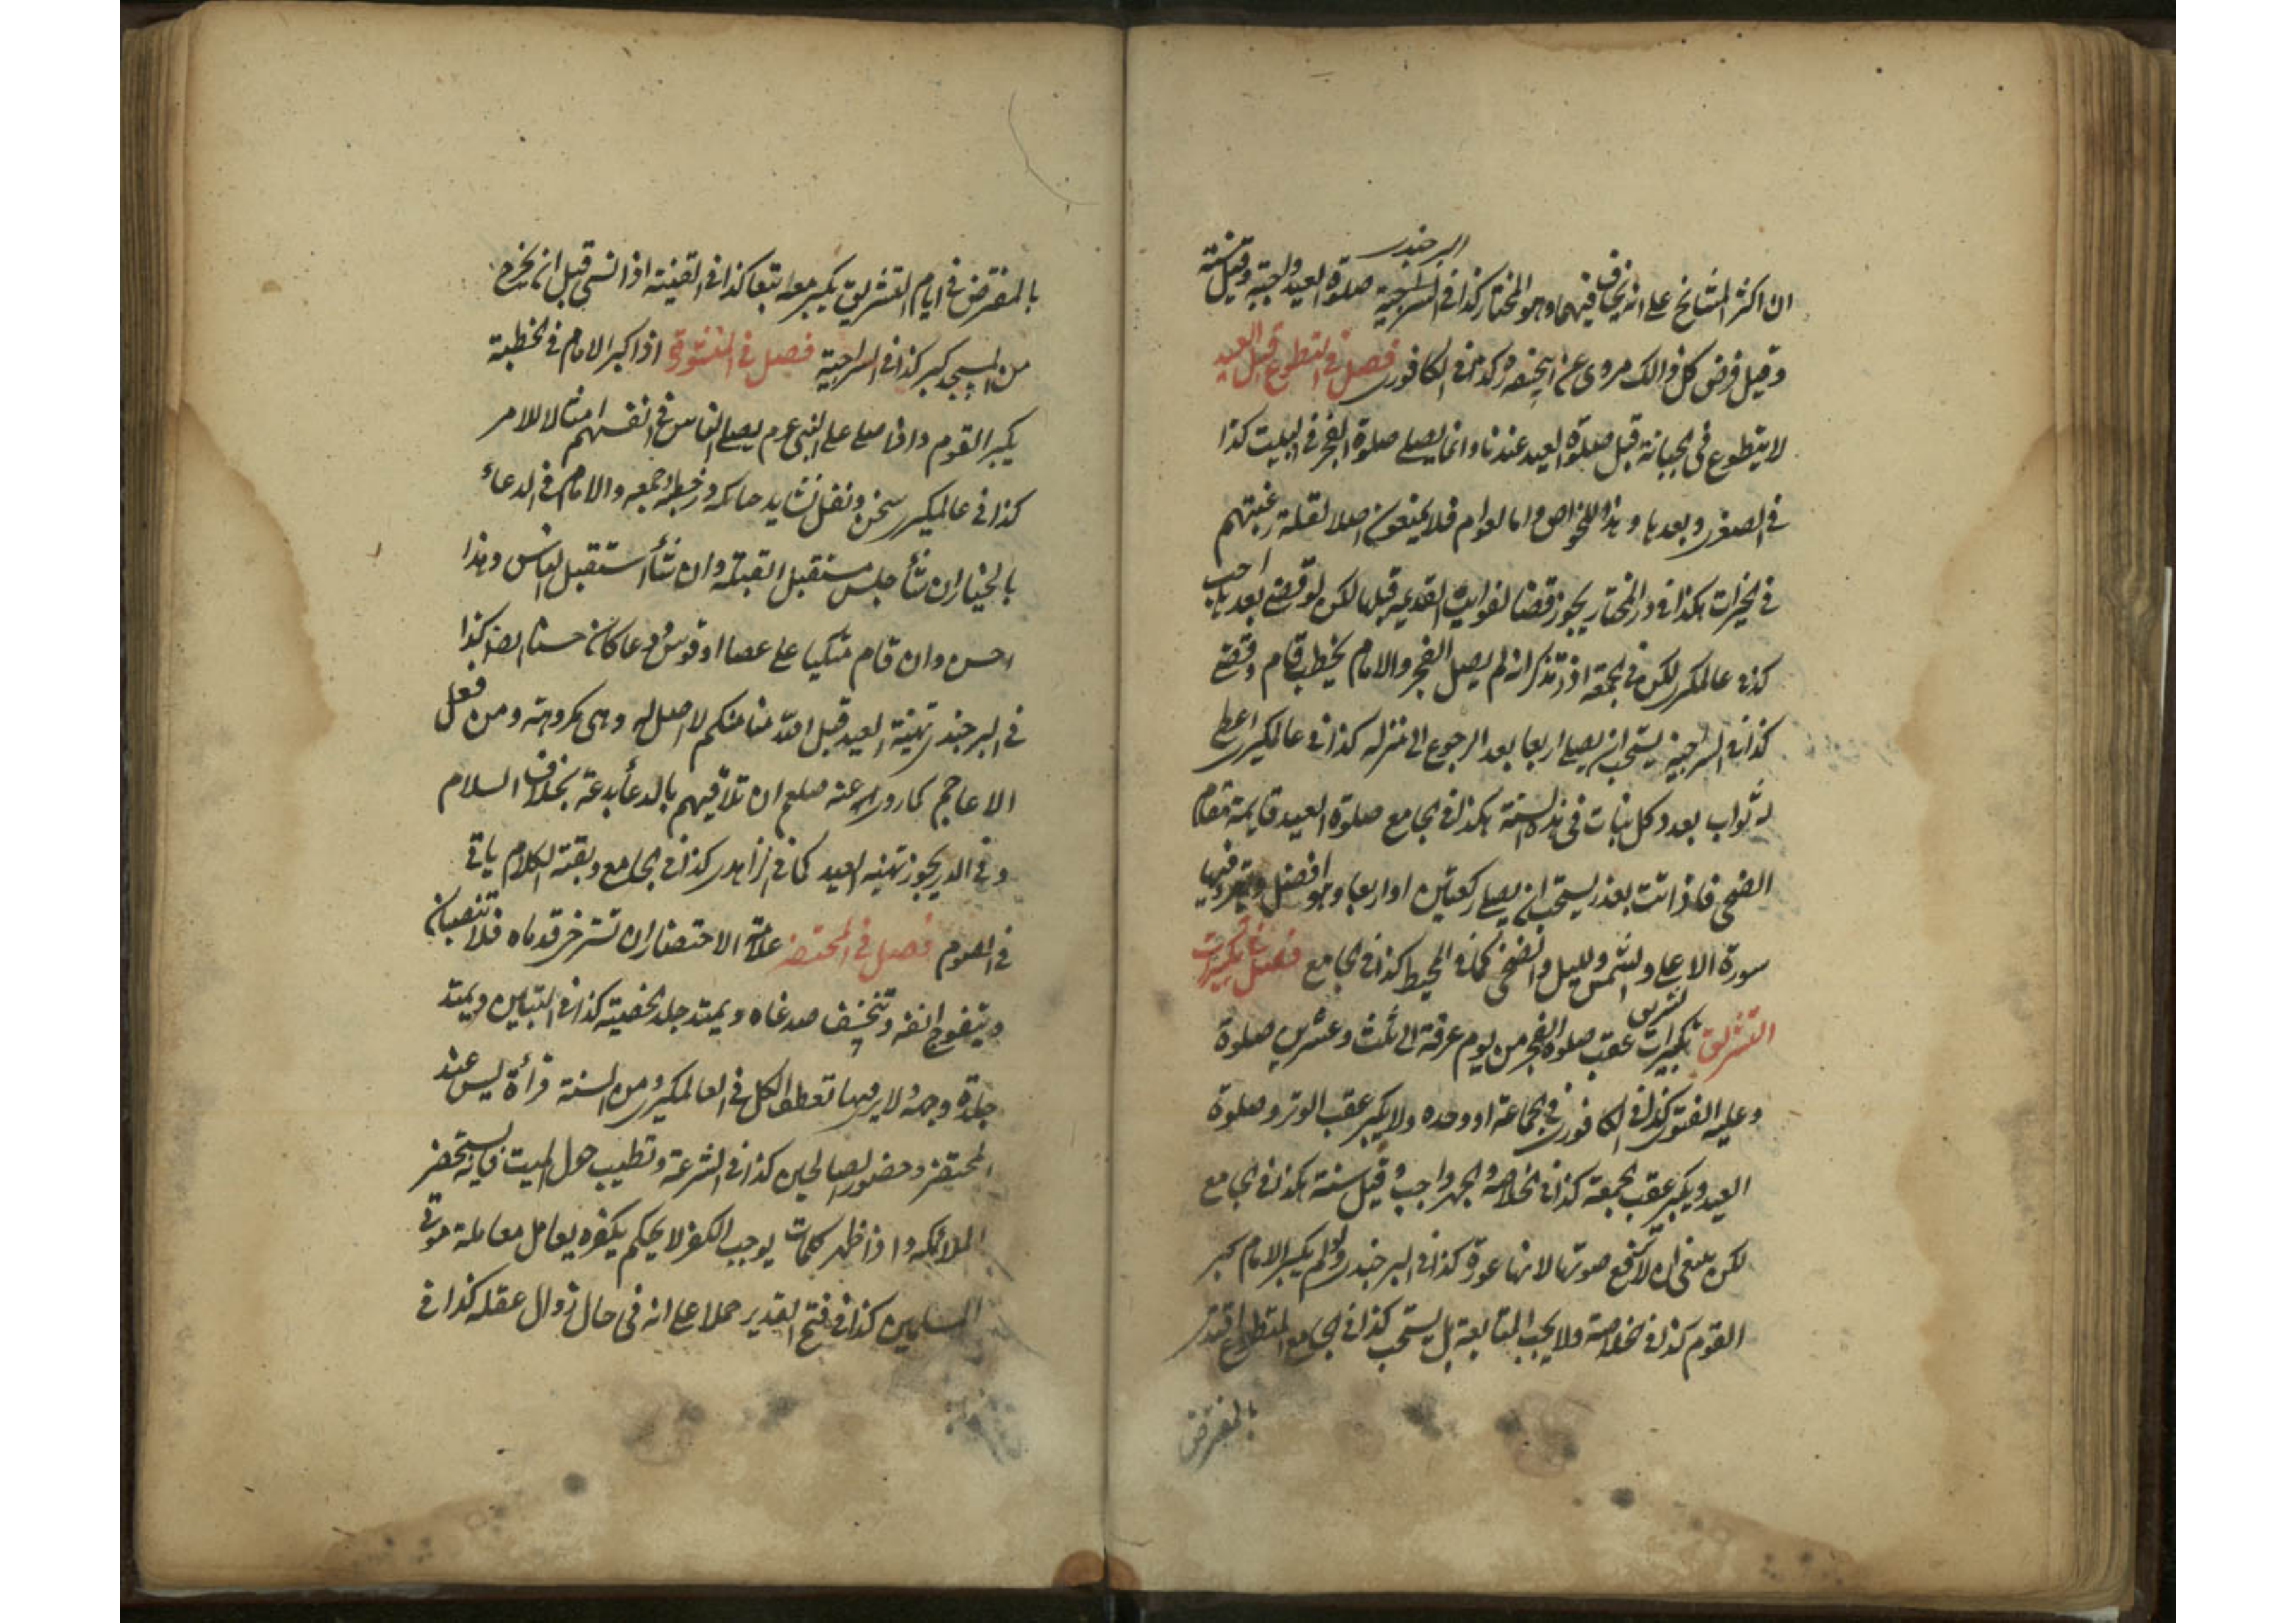 البرجندی
ان اكثر المشايخ على انه يخافت فيهما وهو المختار كذا فى السراجية صلوة العيد واجبة وقيل سنة
وقيل فرض كل ذالك مروى عن ابيحنيفه وكذا فى الكافورى فصل فى التطوع قبل العيد
لا يتطوع فى الجبانة قبل صلوة العيد عندنا وانما يصلے صلوة الفجر فى البيت كذا
فى الصغرى وبعدها وهذا للخواص واما لعوام فلا يمنعون اصلا لقلة رغبتهم
فى الخيرات هكذا فى در المختار يجوز قضا لفوايت القديمه قبلها لكن لو قضے بعدها احب
كذا فى عالمكيرى لكن فى الجمعة اذ تذكر انه لم يصل الفجر والامام يخطب قام وقضے
كذا فى السراجيه يستحب ان يصلے اربعا بعد الرجوع الى منزله كذا فى عالمكيرى اعطى
له ثواب بعدد كل نبات فى هذه السنة هكذا فى الجامع صلوة العيد قايمة مقام
الضحى فاذا فاتت بعذر يستحب ان يصلے ركعتين او اربعا وهو افضل ويقرء فيها
سورة الاعلى والشمس والليل والضحى كما فى المحيط كذا فى الجامع فصل فى تكبيرات
التشريق تكبيرات تشريق عقب صلوة الفجر من يوم عرفة الى ثلث وعشرين صلوة
وعليه الفتوى كذا فى الكافورى فى الجماعة او وحده ولا يكبر عقب الوتر وصلوة
العيد ويكبر عقب الجمعة كذا فى الخلاصه والجهر واجب وقيل سنة هكذا فى الجامع
لكن ينبغى ان لا ترفع صوتها لانها عورة كذا فى البرجندى ولو لم يكبر الامام كبر
القوم كذا فى الخلاصة ولا يجب المتابعة بل يستحب كذا فى الجامع المتطوع اقتدى
بالمفترض
بالمفترض فى ايام التشريق يكبر معه تبعا كذا فى القنية اذا نسى قبل ان يخرج
من المسجد كبر كذا فى السراجية فصل فى المتفرقة اذا كبر الامام فى الخطبة
يكبر القوم واذا صلے على النبى عرم يصلے الناس فى انفسهم امتثالا للامر
كذا فى عالمكيرى سخن ونفل نشايد حاكمه در خطبه جمعه والامام فى الدعاء
بالخيار ان شأ جلس مستقبل القبلة وان شأ استقبل الناس وهذا
احسن وان قام متكيا على عصا او قوس ودعا كان حسنا ايضا كذا
فى البرجندى تهنية العيد قبل الله منا منكم لا اصل له وهى مكروهة ومن فعل
الاعاجم كما روى عنه صلعم ان تلاقيهم بالدعأ بدعة بخلاف السلام
وفى الدر يجوز تهنيه العيد كما فى الزاهدى كذا فى الجامع وبقية الكلام ياتى
فى الصوم فصل فى المحتضر علامة الاحتضار ان تسترخى قدماه فلا تنصبان
ويتعوج انفه وتنخسف صدغاه ويمتد جلد الخصية كذا فى التبيين ويمتد
جلدة وجهه ولا يرى فيها تعطف الكل فى العالمكيرى ومن السنة قرأة يس عند
المحتضر وحضور الصالحين كذا فى الشرعة وتطيب حول الميت فانه يستحضر
الملائكه واذا ظهر كلمات يوجب الكفر لا يحكم بكفره يعامل معاملة موتى
المسلمين كذا فى فتح القدير حملا على انه فى حال زوال عقله كذا فى